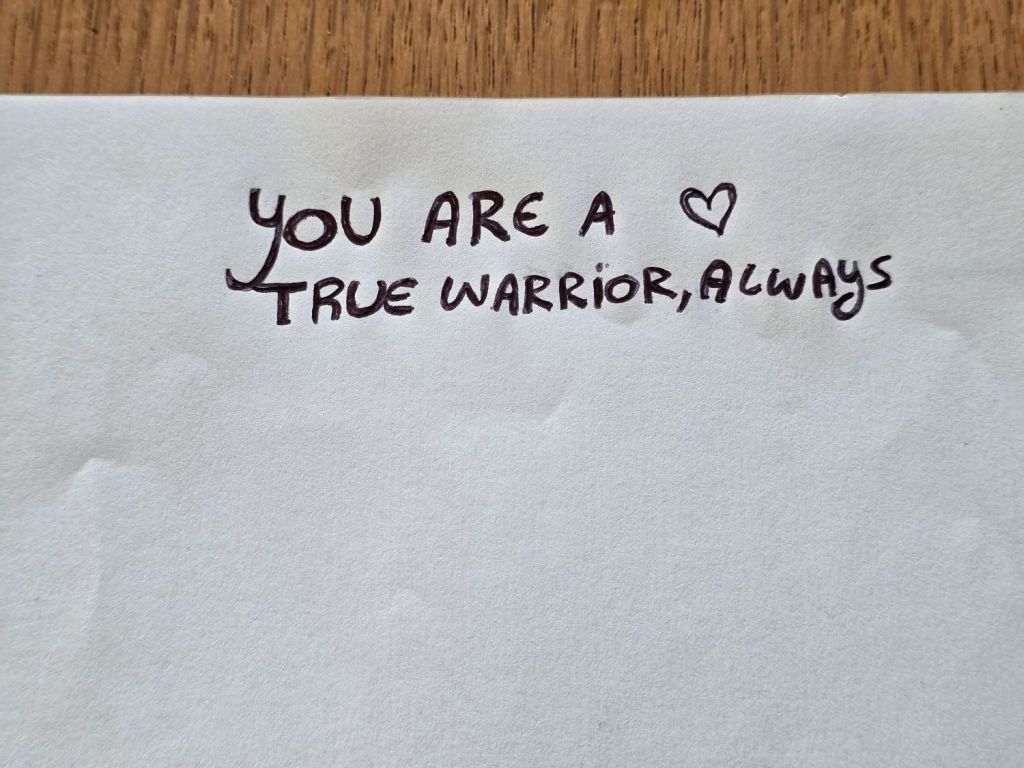 YOU ARE A ♡
TRUE WARRIOR, ALWAYS